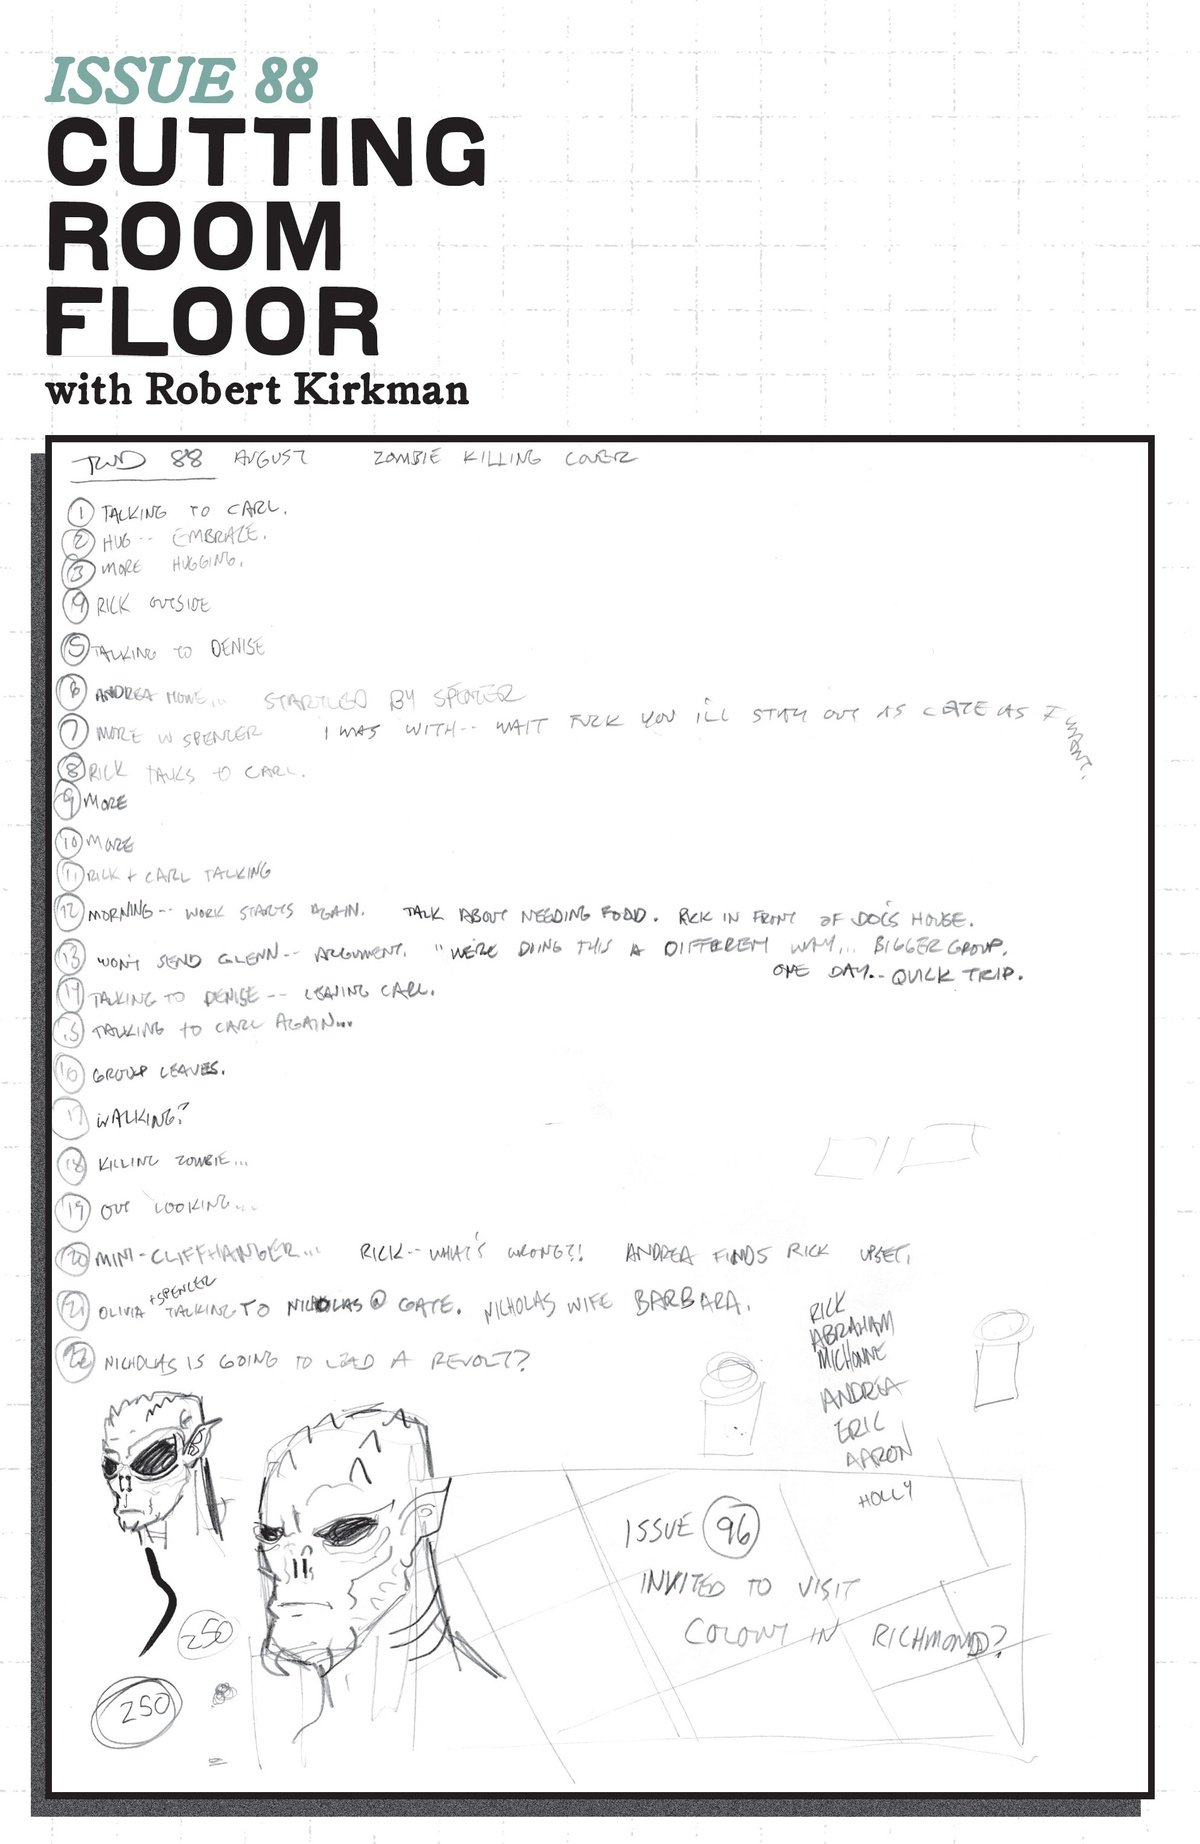 ISSUE 88
CUTTING
ROOM
FLOOR
with Robert Kirkman
TWD 88 AUGUST ZOMBIE KILLING COVER
1 TALKING TO CARL.
2 HUG-- EMBRACE.
3 MORE HUGGING.
4 RICK OUTSIDE
5 TALKING TO DENISE
6 ANDREA HOME... STARTLED BY SPENCER
7 MORE W SPENCER I WAS WITH-- WAIT FUCK YOU I'LL STAY OUT AS LATE AS I WANT.
8 RICK TALKS TO CARL.
9 MORE
10 MORE
11 RICK + CARL TALKING
12 MORNING-- WORK STARTS AGAIN. TALK ABOUT NEEDING FOOD. RICK IN FRONT OF DOC'S HOUSE.
13 WON'T SEND GLENN-- ARGUMENT. "WE'RE DOING THIS A DIFFERENT WAY... BIGGER GROUP.
ONE DAY.. QUICK TRIP.
14 TALKING TO DENISE-- LEAVING CARL.
15 TALKING TO CARL AGAIN...
16 GROUP LEAVES.
17 WALKING?
18 KILLING ZOMBIE...
19 OUT LOOKING...
20 MINI-CLIFFHANGER... RICK-- WHAT'S WRONG?! ANDREA FINDS RICK UPSET.
21 OLIVIA +SPENCER TALKING TO NICHOLAS @ GATE. NICHOLAS WIFE BARBARA.
22 NICHOLAS IS GOING TO LEAD A REVOLT?
RICK
ABRAHAM
MICHONNE
ANDREA
ERIC
AARON
HOLLY
ISSUE 96
INVITED TO VISIT
COLONY IN RICHMOND?
250
250